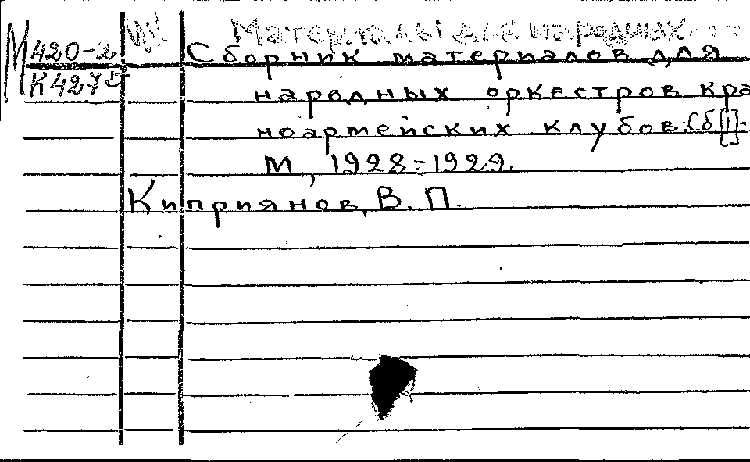 Материалы для народных
М 420-2 Сборник материалов для
К 427 народных оркестров кра
ноармейских клубов. Сб[1]-
М, 1928-1929.
Киприянов, В. П.